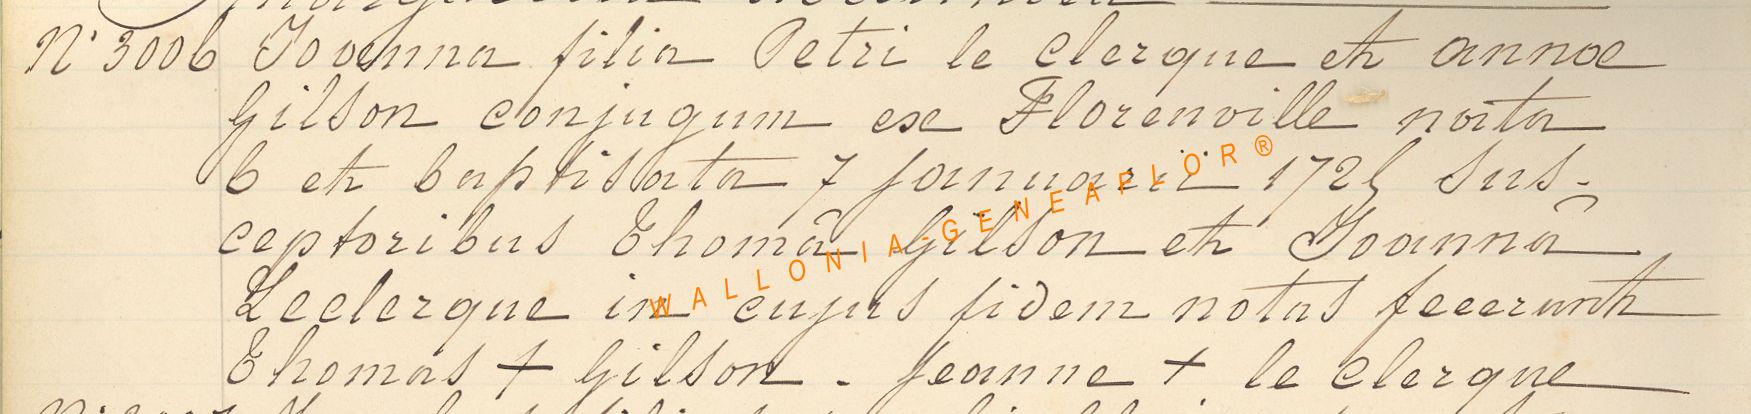 N° 3006 Joanna filia Petri le clerque et annae
Gilson conjugum ex Florenville nata
6 et baptisata 7 januarii 1725 sus-
ceptoribus Thomâ Gilson et Joannâ
Leclerque in cujus fidem notas fecerunt
Thomas + Gilson . jeanne + le clerque
WALLONIA-GENEAFLOR®